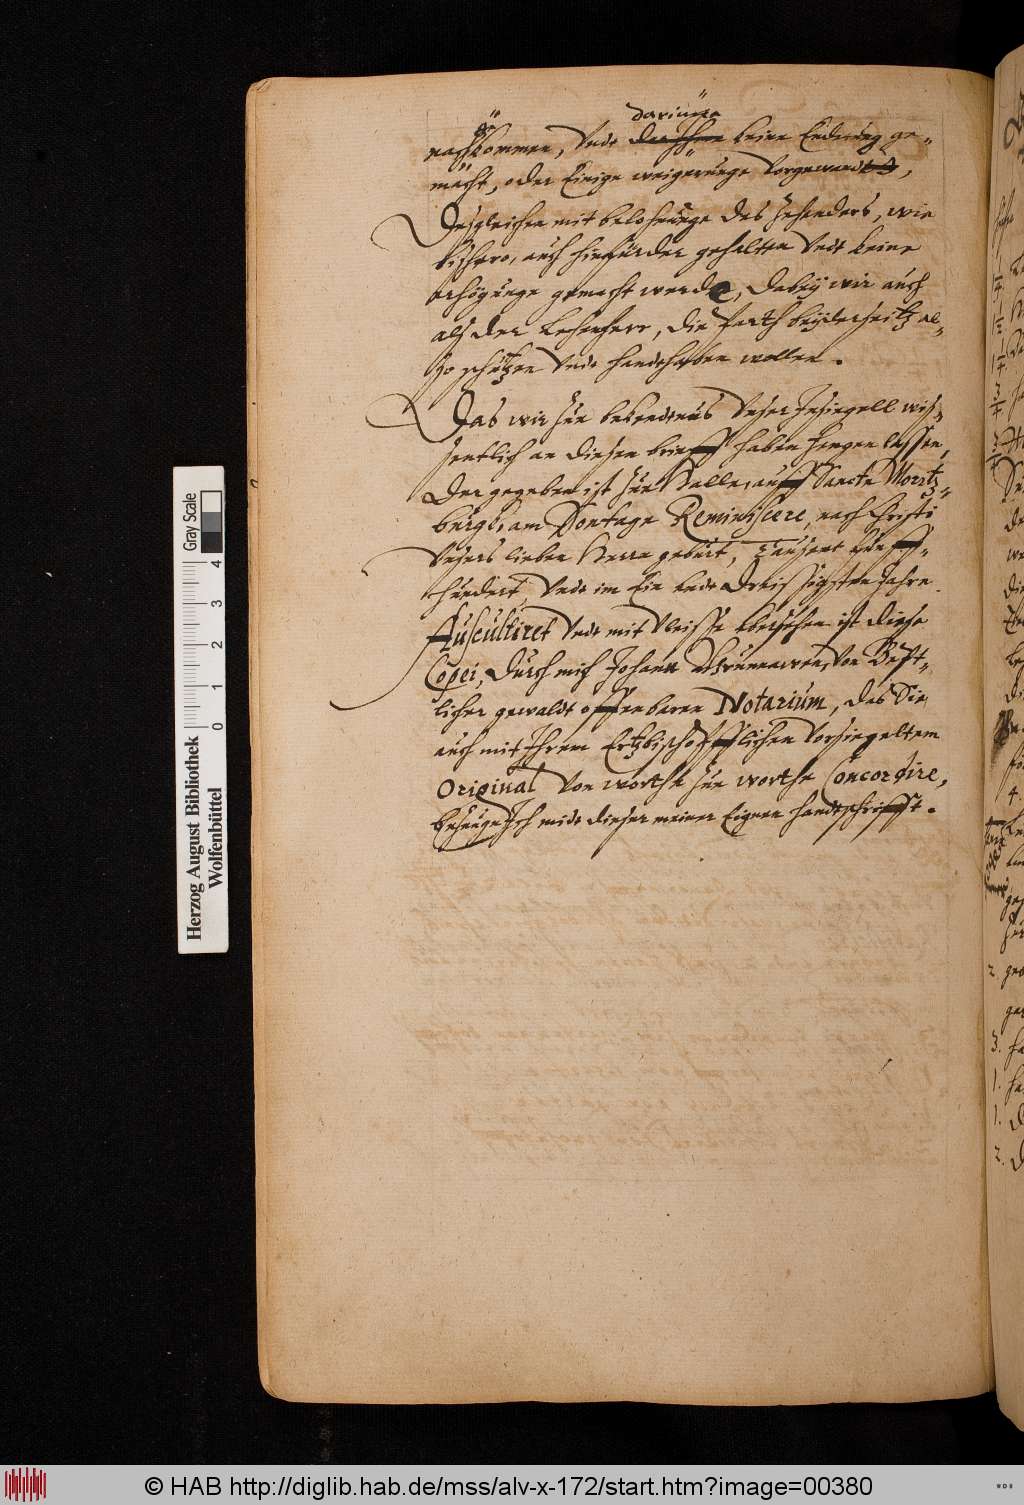 darinne
nachkommen, Vnnd keine Enderung ge-
macht, oder Einige weigerunge Vorgewandt,
Desgleichen mit belohnunge des Zehenders, wie
bishero, auch hinfürder gehaltten Vnd keine
erhögunge gemacht werde, Dabeÿ wir auch
als der Lehenherr, die Parth beÿderseitz al-
so schützen Vnd handthaben wollen.
Das wir Zue bekendtnus Vnser Insiegell wis-
sentlich an diesen brieff haben hengen lassen,
Der gegeben ist Zue Halle, auff Sancte Moritz-
burgk, am Sontage Reminiscere, nach Christi
Vnsers lieben Herrn geburt, Tausent Fünff-
hundert, Vnd im Ein und Dreissigsten Jahre.
Auscultiret Vnd mit Vleisse Übersehen ist diese
Copei, Durch mich Johann Von Bebst-
licher gewaldt offenbaren Notarium, Das Sie
auch mit Ihrem Ertzbischofflichen Vorsiegeltem
Original Von worthe Zue worthe Concordire,
bezeuge Ich midt dieser meiner Eignen handtschrifft.
Herzog August Bibliothek
Wolfenbüttel
Gray Scale
0 1 2 3 4
© HAB http://diglib.hab.de/mss/alv-x-172/start.htm?image=00380